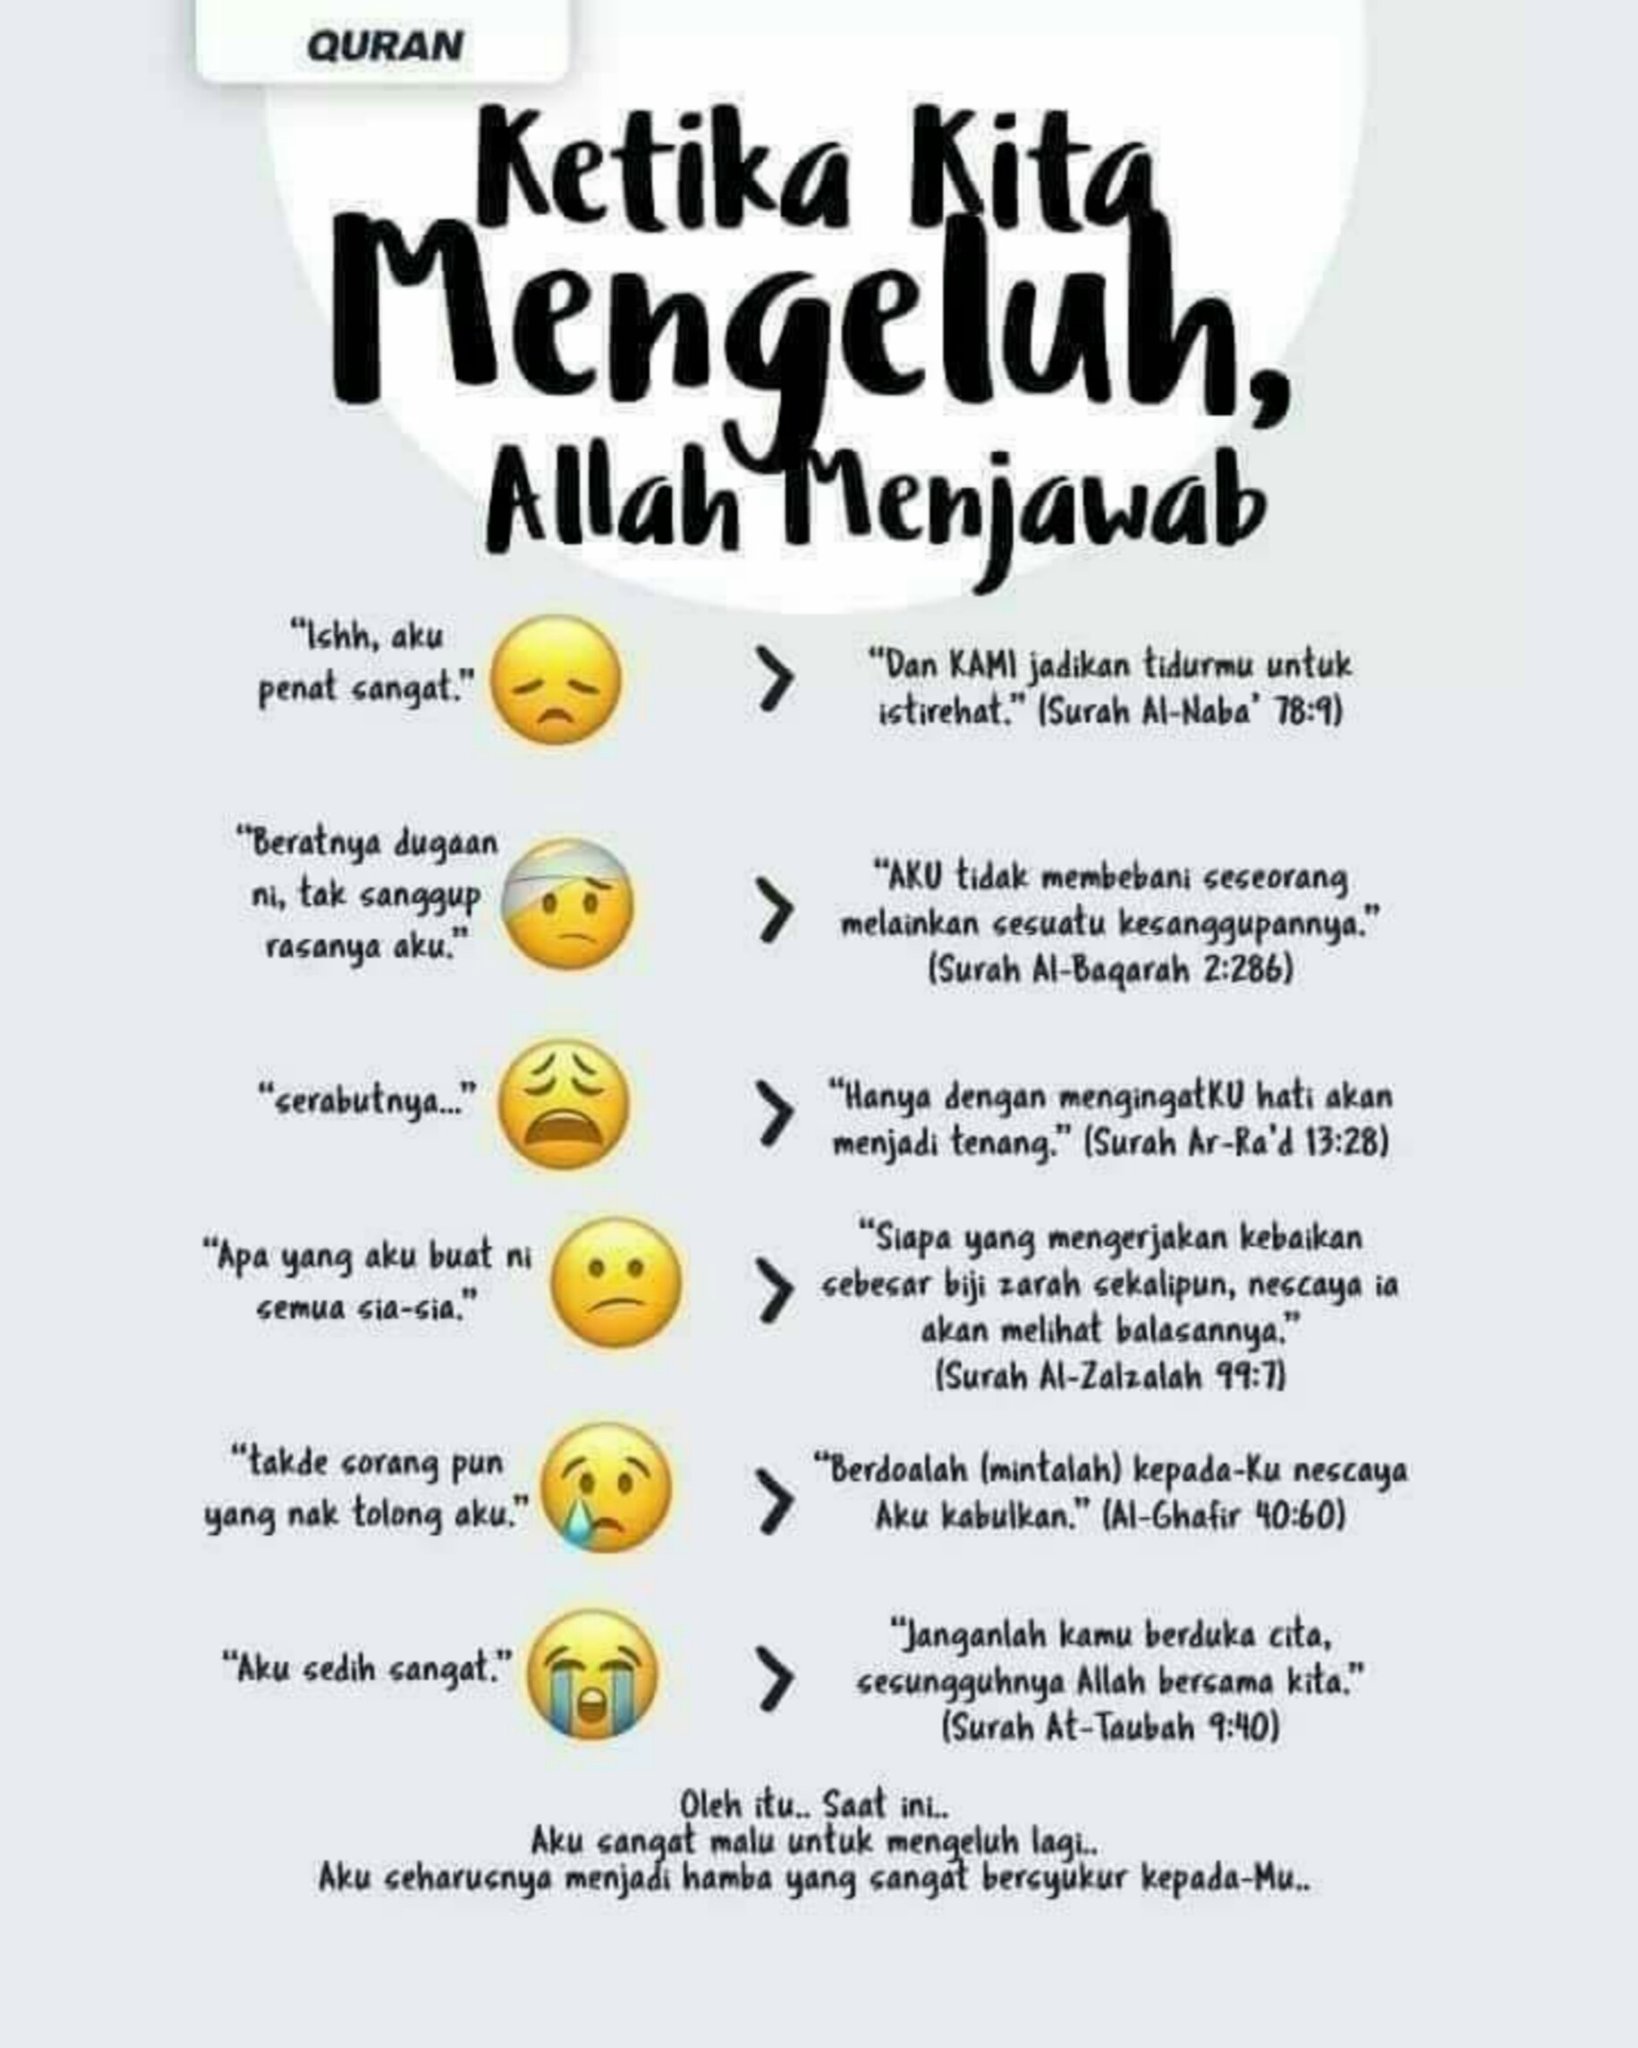 QURAN
Ketika Kita
Mengeluh,
Allah Menjawab
"Ishh, aku
penat sangat."
"Dan KAMI jadikan tidurmu untuk
istirehat." (Surah Al-Naba' 78:9)
"Beratnya dugaan
ni, tak sanggup
rasanya aku."
"AKU tidak membebani seseorang
melainkan sesuatu kesanggupannya."
(Surah Al-Baqarah 2:286)
"serabutnya..."
"Hanya dengan mengingatKU hati akan
menjadi tenang." (Surah Ar-Ra'd 13:28)
"Apa yang aku buat ni
semua sia-sia."
"Siapa yang mengerjakan kebaikan
sebesar biji zarah sekalipun, nescaya ia
akan melihat balasannya."
(Surah Al-Zalzalah 99:7)
"takde sorang pun
yang nak tolong aku."
"Berdoalah (mintalah) kepada-Ku nescaya
Aku kabulkan." (Al-Ghafir 40:60)
"Aku sedih sangat."
"Janganlah kamu berduka cita,
sesungguhnya Allah bersama kita."
(Surah At-Taubah 9:40)
Oleh itu.. Saat ini..
Aku sangat malu untuk mengeluh lagi..
Aku seharusnya menjadi hamba yang sangat bersyukur kepada-Mu..